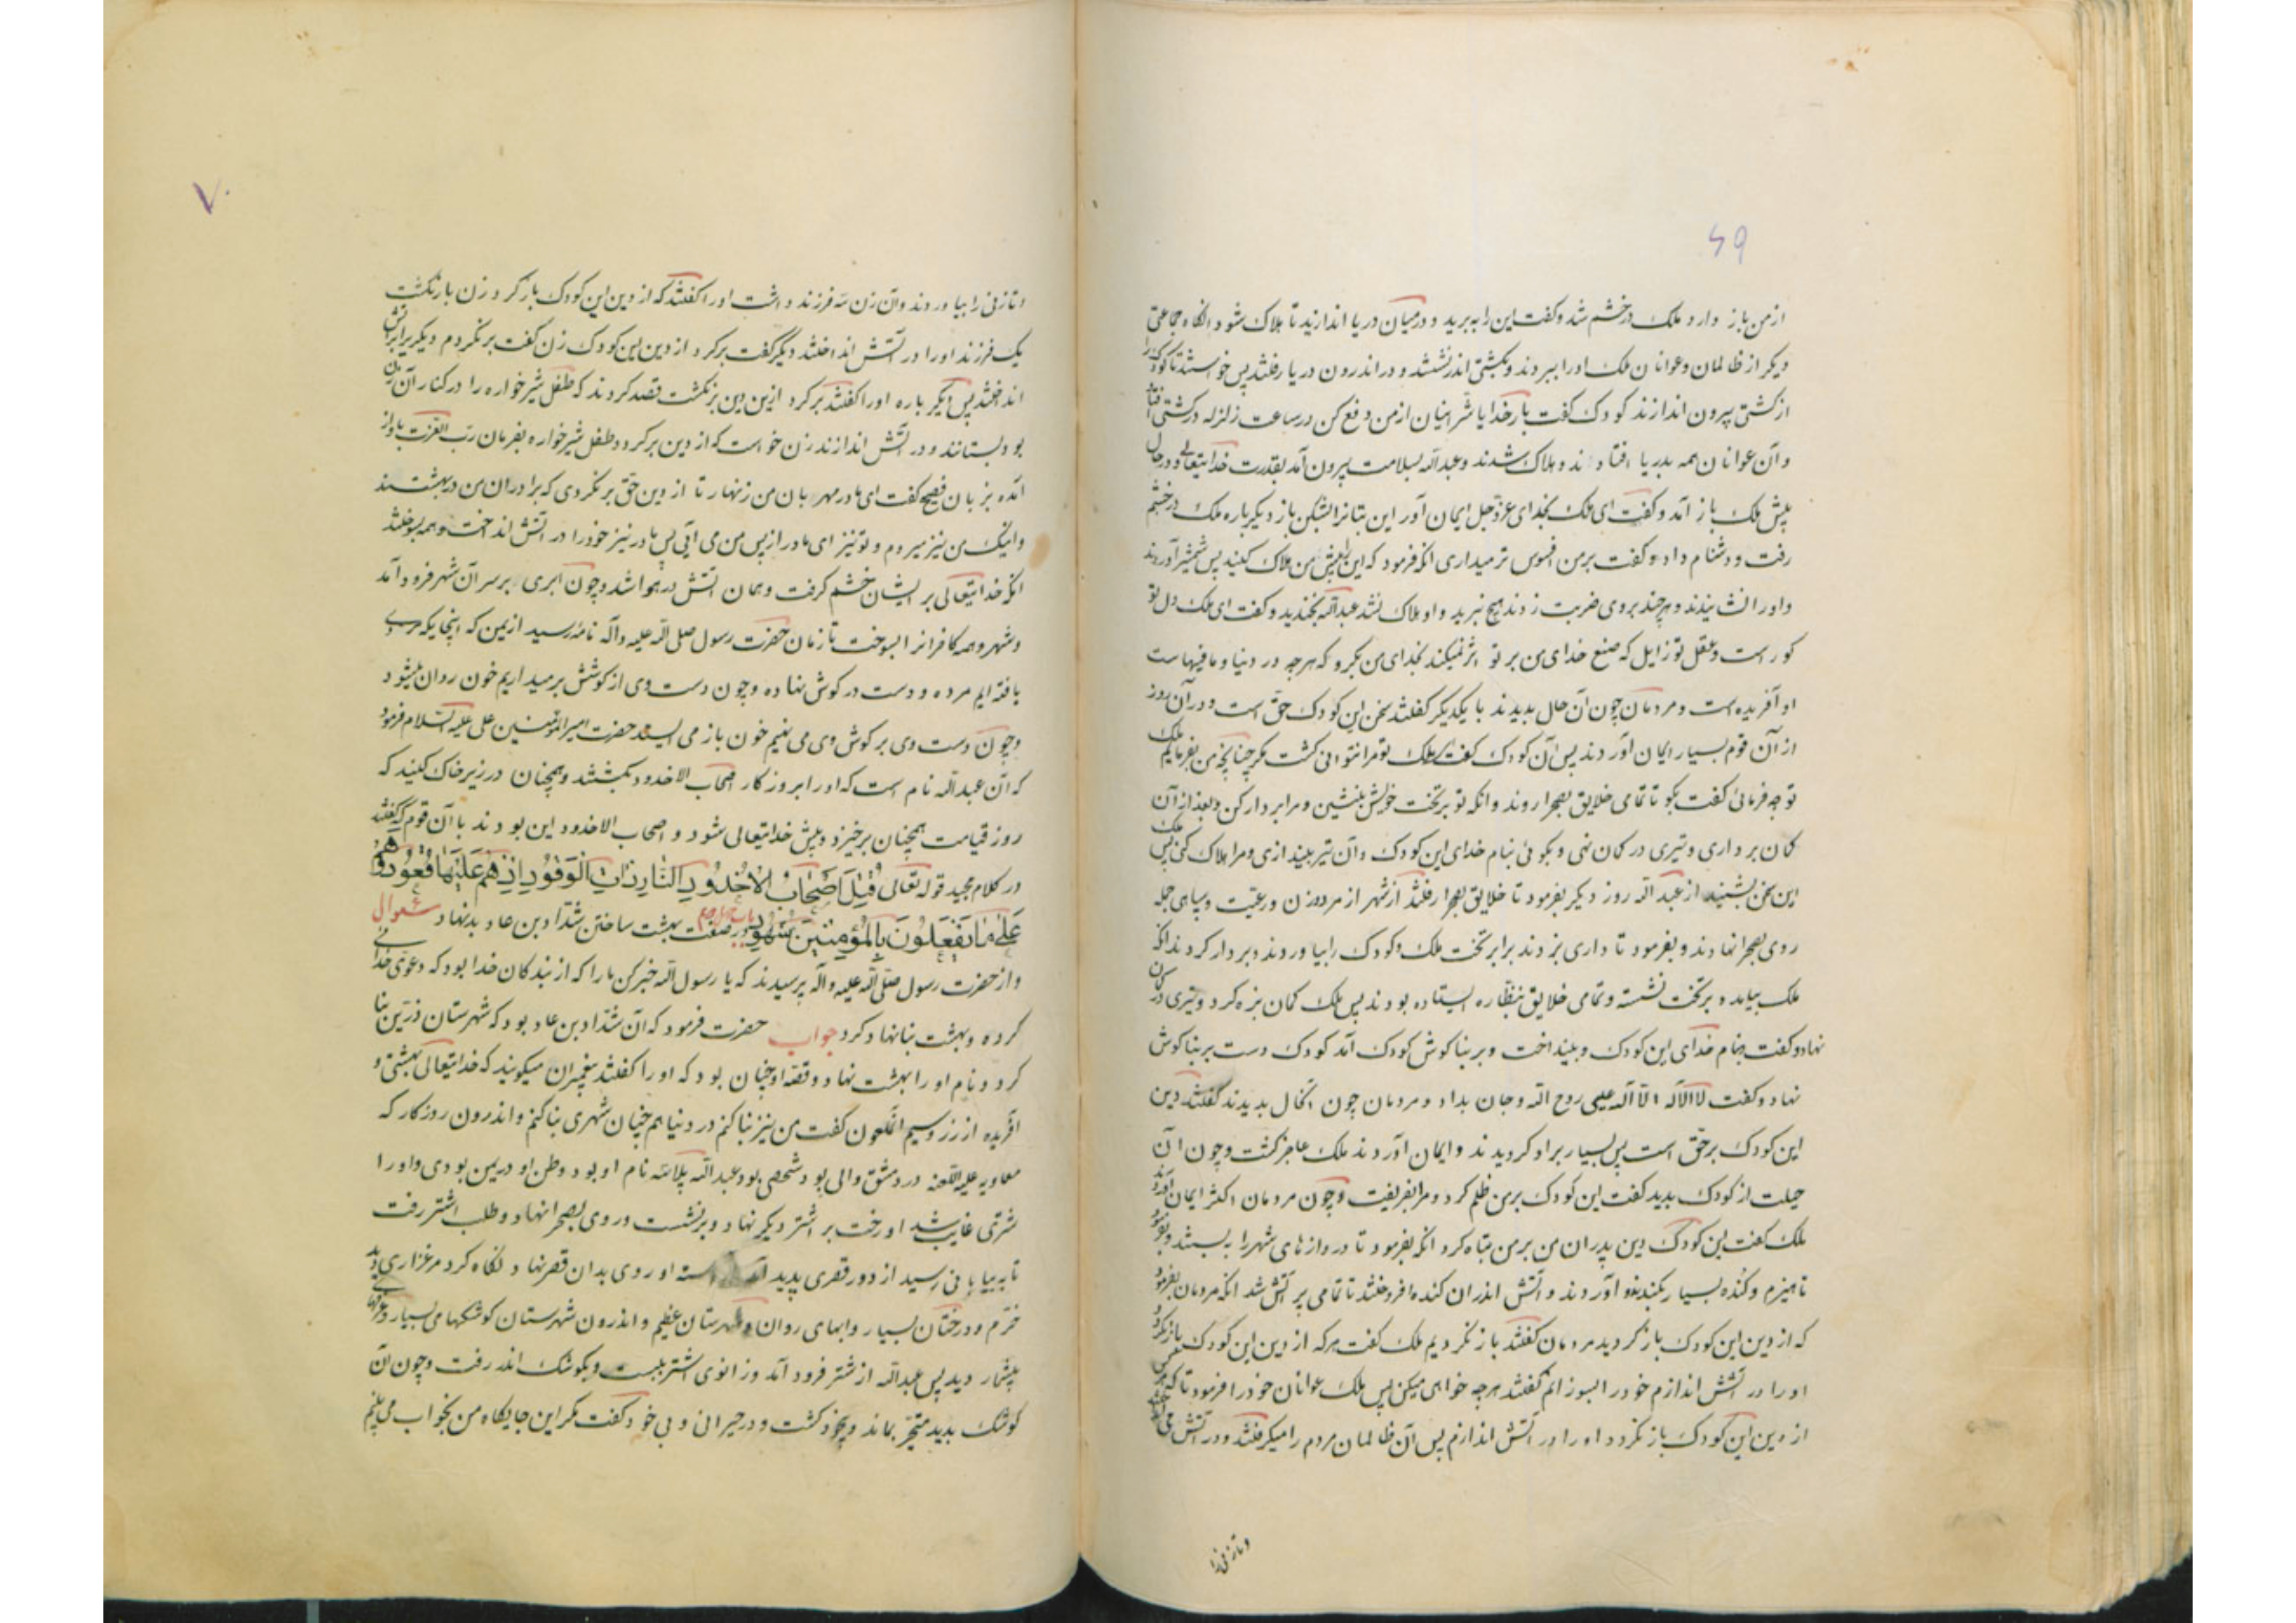 ۶۹
از من باز دارد ملک در خشم شد و گفت این را ببرید و در میان دریا اندازید تا هلاک شود انگاه جماعتی
دیگر از ظالمان و عوانان ملک او را ببردند و بکشتی اندر نشستند و در اندرون دریا رفتند پس خواستند تا کودک را
از کشتی بیرون اندازند کودک گفت بار خدایا شر اینان از من دفع کن در ساعت زلزله در کشتی افتاد
و آن عوانان همه بدریا افتادند و هلاک شدند و عبدالله بسلامت بیرون آمد بقدرت خدایتعالی و در حال
پیش ملک باز آمد و گفت ای ملک بخدای عزوجل ایمان آور این بتانرا بشکن باز دیگر باره ملک در خشم
رفت و دشنام داد و گفت بر من فسوس تر میداری انگه فرمود که این را پیش من هلاک کنید پس شمشیر آوردند
و او را نشانیدند و هر چند بر وی ضربت زدند هیچ نبرید و او هلاک نشد عبدالله بخندید و گفت ای ملک دل تو
کور است و عقل تو زایل که صنع خدای من بر تو اثر نمیکند بخدای من بگرو که هر چه در دنیا و مافیهاست
او آفریده است و مردمان چون آن حال بدیدند با یکدیگر گفتند سخن این کودک حق است و در آن روز
از آن قوم بسیار ایمان آوردند پس آن کودک گفت ای ملک تو مرا نتوانی کشت مگر چنانچه من بفرمایم ملک
تو چه فرمائی گفت بگو تا تمامی خلایق بصحرا روند و انگه تو بر تخت خویش بنشین و مرا بر دار کن و بعد از آن
کمان برداری و تیری در کمان نهی و بگوئی بنام خدای این کودک و آن تیر بیندازی و مرا هلاک کنی پس ملک
این سخن بشنید از عبدالله روز دیگر بفرمود تا خلایق بصحرا رفتند از شهر از مرد و زن و رعیت و سپاهی جمله
روی بصحرا نهادند و بفرمود تا داری بزدند برابر تخت ملک و کودک را بیاوردند و بر دار کردند انگه
ملک بیامد و بر تخت نشسته و تمامی خلایق بنظاره ایستاده بودند پس ملک کمان بزه کرد و تیری در کمان
نهاد و گفت بنام خدای این کودک و بینداخت و بر بناگوش کودک آمد کودک دست بر بناگوش
نهاد و گفت لا اله الا الله عیسی روح الله و جان بداد و مردمان چون انحال بدیدند گفتند دین
این کودک بر حق است پس بسیار بر او گرویدند و ایمان آوردند ملک عاجز گشت و چون آن
حیلت از کودک بدید گفت این کودک بر من ظلم کرد و مرا بفریفت و چون مردمان اکثر ایمان آوردند
ملک گفت این کودک دین پدران من بر من تباه کرد انگه بفرمود تا دروازهای شهر را ببستند و بفرمود
تا هیزم و کنده بسیار بکنند و آوردند و آتش اندران کنده افروختند تا تمامی پر آتش شد انگه مردمان بفرمود
که از دین این کودک باز گردید مردمان گفتند باز نگردیم ملک گفت هر که از دین این کودک باز نگردد
او را در آتش اندازم خود را بسوزانم گفتند هر چه خواهی میکن پس ملک عوانان خود را فرمود تا هر که
از دین این کودک باز نگردد او را در آتش اندازم پس آن ظالمان مردم را میگرفتند و در آتش می
و تا زنی را
۷۰
و تا زنی را بیاوردند و آن زن سه فرزند داشت او را گفتند که از دین این کودک باز گرد زن باز نگشت
یک فرزند او را در آتش انداختند دیگر گفت برگرد از دین این کودک زن گفت بر نگردم دیگر برا در آتش
انداختند پس دیگر باره او را گفتند برگرد از این دین بر نگشت قصد کردند که طفل شیر خواره را در کنار آن زن
بود بستانند و در آتش اندازند زن خواست که از دین برگردد طفل شیر خواره بفرمان رب العزت باواز
آمده بزبان فصیح گفت ای مادر مهربان من زنهار تا از دین حق بر نگردی که برادران من در بهشتند
و اینک من نیز میروم و تو نیز ای مادر از پس من می آیی پس مادر نیز خود را در آتش انداخت و همه بسوختند
انگه خدایتعالی بر ایشان خشم گرفت و همان آتش در هوا شد و چون ابری بر سر آن شهر فرود آمد
و شهر و همه کافرانرا بسوخت تا زمان حضرت رسول صلی الله علیه و آله نامه رسید از یمن که اینجا یکمردی
یافته ایم مرده و دست در گوش نهاده و چون دست وی از گوشش بر میداریم خون روان میشود
و چون دست وی بر گوش وی می نهیم خون باز می ایستد حضرت امیرالمؤمنین علی علیه السلام فرمود
که آن عبدالله نام است که او را بروزگار اصحاب الاخدود بکشتند و همچنان در زیر خاک کنید که
روز قیامت همچنان بر خیزد و پیش خدایتعالی شود و اصحاب الاخدود این بودند با آن قوم که گفتند
در کلام مجید قوله تعالی قُتِلَ اَصْحٰابُ الْاُخْدُودِ النّٰارِ ذٰاتِ الْوَقُودِ اِذْ هُمْ عَلَیْهٰا قُعُودٌ وَ هُمْ
عَلیٰ مٰا یَفْعَلُونَ بِالْمُؤْمِنینَ شُهُودٌ در صفت بهشت ساختن شداد بن عاد بدنهاد سئوال
و از حضرت رسول صلی الله علیه و آله پرسیدند که یا رسول الله خبر کن ما را که از بندگان خدا بود که دعوی خدائی
کرده و بهشت بنا نهاد کرد جواب حضرت فرمود که آن شداد بن عاد بود که شهرستان زرین بنا
کرد و نام او را بهشت نهاد و قصه او چنان بود که او را گفتند پیغمبران میگویند که خدایتعالی بهشتی و
آفریده از زر و سیم انملعون گفت من نیز بنا کنم در دنیا هم چنان شهری بنا کنم و اندرون روزگار که
معاویه علیه اللعنه در دمشق والی بود شخصی بود عبدالله نام او بود و وطن او در یمن بودی و او را
شتری غایب شد او رخت بر اشتر دیگر نهاد و بر نشست و روی بصحرا نهاد و طلب اشتر رفت
تا به بیابانی رسید از دور قصری پدید او روی بدان قصر نهاد و نگاه کرد مرغزاری دید
خرم و درختان بسیار و ابهای روان و شهرستان عظیم و اندرون شهرستان کوشکهای بسیار و غرفهای
بیشمار دید پس عبدالله از شتر فرود آمد و زانوی اشتر ببست و بکوشک اندر رفت و چون آن
کوشک بدید متحیر بماند و بیخود گشت و در حیرانی و بی خود گفت مگر این جایگاه من بخواب می بینم